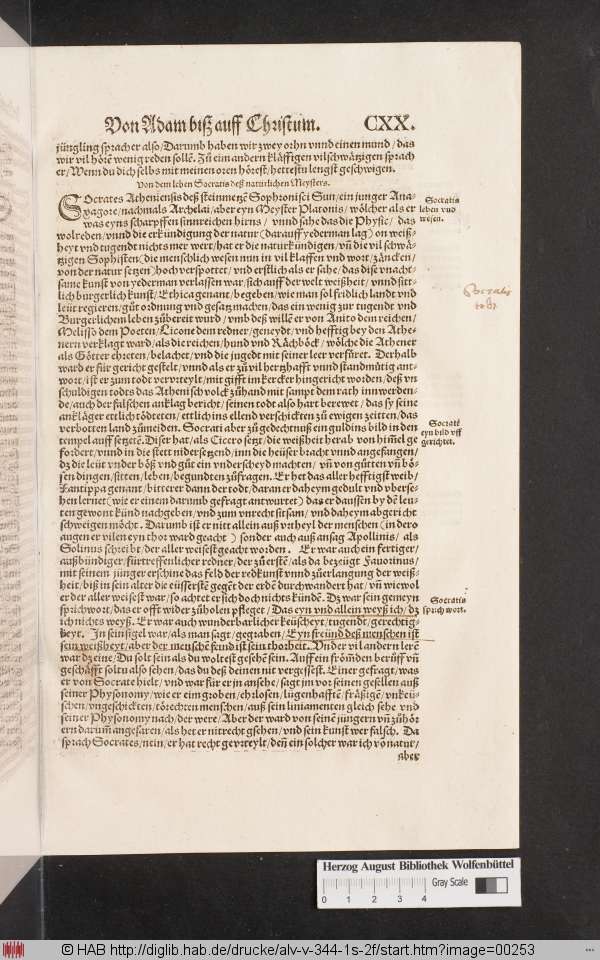 Von Adam biß auff Christum. CXX.
jüngling sprach er also/Darumb haben wir zwey orhn vnnd einen mund/das
wir vil hörē wenig reden sollē. Zů ein andern kläffigen vilschwätzigen sprach
er/Wenn du dich selbs mit meinen oren hörest/hettestu lengst geschwigen.
Von dem leben Socratis deß natürlichen Meysters.
SOcrates Atheniensis deß steinmetzē Sophronisci Sun/ein junger Ana-
xagore/nachmals Archelai/aber eyn Meyster Platonis/wölcher als er
was eyns scharpffen sinnreichen hirns/vnnd sahe das die Physic/das
wolreden/vnnd die erkündigung der natur(darauff yederman lag) on weiß-
heyt vnd tugendt nichts mer wert/hat er die naturkündigen/vñ die vil schwä-
tzigen Sophisten(die menschlich wesen nun in vil klaffen vnd wort/zäncken/
von der natur setzen)hoch verspottet/vnd erstlich als er sahe/das dise vnacht-
same kunst von yederman verlassen war/sich auff der welt weißheit/vnnd sitt-
lich burgerlich kunst/Ethica genant/begeben/wie man sol fridlich landt vnd
leüt regieren/gůt ordnung vnd gesatz machen/das ein wenig zur tugendt vnd
Burgerlichem leben zübereit wurd/vmb deß will er von Anito dem reichen/
Melisso dem Poeten/Licone dem redner/geneydt/vnd hefftig bey den Athe-
nern verklagt ward/als die reichen/hund vnd Räcböck/wölche die Athener
als Götter ehreten/belachet/vnd die jugedt mit seiner leer verfüret. Derhalb
ward er für gericht gestelt/vnnd als er zů vil hertzhafft vnnd standmütig ant-
wort/ist er zum todt vervrteylt/mit gifft im kercker hingericht worden/deß vn
schuldigen todts das Athenisch volck zůhand mit sampt dem rath inn werden-
de/auch der falschen anklag bericht/seinen todt also hart berewet/das sy seine
ankläger ettlich tödteten/ettlich ins ellend verschickten zů ewigen zeitten/das
verbotten land zůmeiden. Socrati aber zů gedechtnuß ein guldins bild in den
tempel auff setzetē. Diser hat/als Cicero setzt/die weißheit herab von him̄el ge
fordert/vnnd in die stett nidersetzend/inn die heüser bracht vnnd angefangen/
dz die leüt vnder böß vnd gůt ein vnderscheyd machten/vñ von gůtten vñ bö-
sen dingen/sitten/leben/begundten zůfragen. Er het das aller hefftigst weib/
Xantippa genant/bitterer dann der todt/daran er daheym gedult vnd vberse-
hen lernet(wie er einem darumb gefragt antwurtet)das er daussen by dē leu-
ten gewont künd nachgeben/vnd zum vnrecht sitsam/vnd daheym abgericht
schweigen möcht. Darumb ist er nitt allein auß vrtheyl der menschen(in dero
augen er vilen eyn thor ward geacht) sonder auch auß ansag Apollinis/als
Solinus schreibt/der aller weisest geacht worden. Er war auch ein fertiger/
außbündiger/fürtreffenlicher redner/der zů erstē/als da bezeügt Fauorinus/
mit seinem jünger erschine das feld der redkunst vnnd zů erlangung der weiß-
heit/biß in sein alter die eüsserstē gegēt der erdē durchwandert hat/vñ wiewol
er der aller weisest war/so achtet er sich doch nichts kündē. Dz war sein gemeyn
sprichwort/das er offt wider zůholen pfleget/Das eyn vnd allein weyß ich/dz
ich nichts weyß. Er war auch wunderbarlicher keüscheyt/tugendt/gerechtig-
heyt. In sein sigel war/als man sagt/gegraben/Eyn freünd deß menschen ist
sein weißheyt/aber der menschē feind ist sein thorheit. Vnder vil andern lerē
war dz eine/Du solt sein als du wolt est gesehē sein. Auff ein frömden berüff vñ
geschäfft soltu also sehen/das du deß deinen nit vergessest. Einer gefragt/was
er von Socrate hielt/vnd war für er jn ansehe/sagt jm vor seinen gesellen auß
seiner Physonomy/wie er eim groben/ehrlosen/lügenhafftē/fräßige/vnkeü-
schen/vngeschickten/törechten menschen/auß sein liniamenten gleich sehe vnd
seiner Physonomy nach/der were/Aber der ward von seinē jüngern vñ zůhör
ern darum̄ angefaren/als het er nit recht gsehen/vnd sein kunst wer falsch. Da
sprach Socrates/nein/er hat recht gevrteylt/deñ ein solcher war ich võ natur/
aber
Socratis
leben vnd
wesen.
Socratis
todt.
Socrati
eyn bild vff
gerichtet.
Socratis
sprichwort.
Herzog August Bibliothek Wolfenbüttel
0 1 2 3 4 Gray Scale
© HAB http://diglib.hab.de/drucke/alv-v-344-1s-2f/start.htm?image=00253